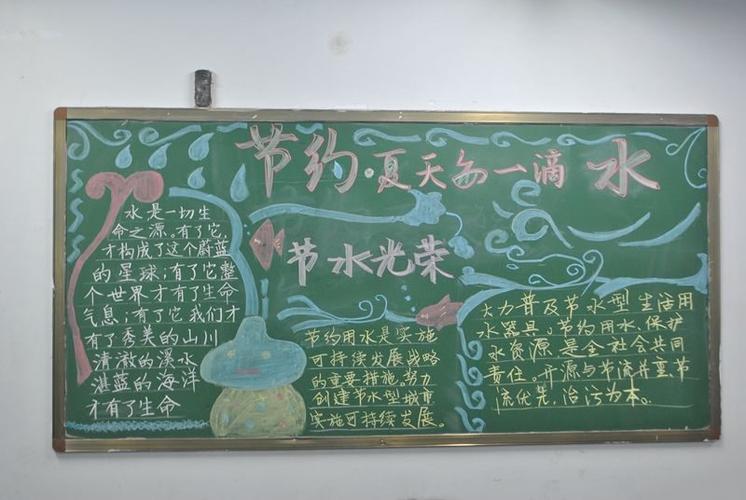 节约·夏天的一滴水
节水光荣
水是一切生
命之源，有了它，
才构成了这个蔚蓝
的星球；有了它整
个世界才有了生命
气息；有了它我们才
有了秀美的山川
清澈的溪水
湛蓝的海洋
才有了生命
节约用水是实施
可持续发展战略
的重要措施。努力
创建节水型城市
实施可持续发展。
大力普及节水型生活用
水器具。节约用水、保护
水资源，是全社会共同
责任。开源与节流并重、节
流优先，治污为本。